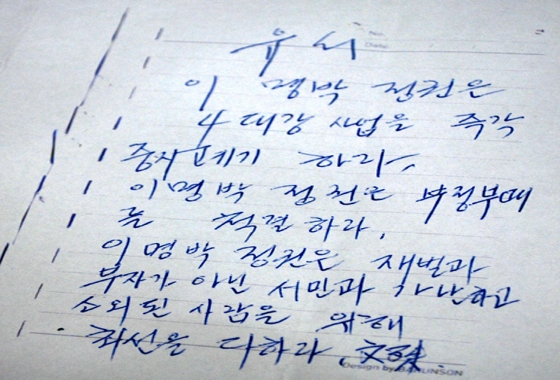 유서
No.
Date.
이 명박 정권은
4대강 사업을 즉각
중지 폐기 하라.
이명박 정권은 부정부패
를 척결하라.
이명박 정권은 재벌과
부자가 아닌 서민과 가난하고
소외된 사람을 위해
최선을 다하라. 文殊
Design by BARUNSON